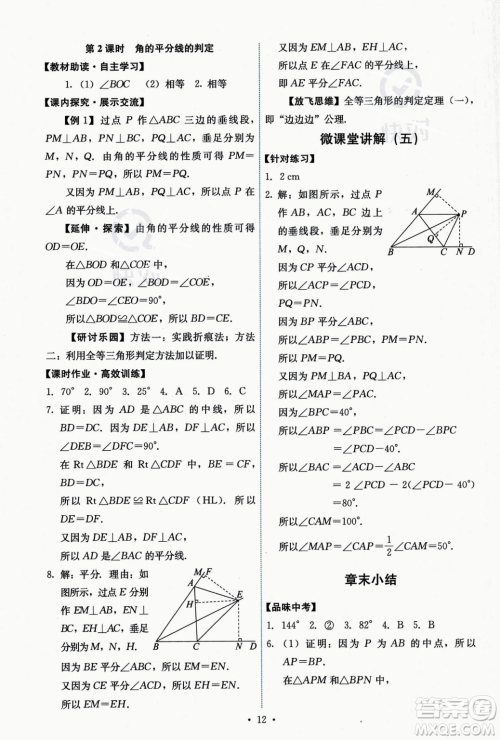 第2课时 角的平分线的判定
【教材助读·自主学习】
1. (1) ∠BOC (2) 相等 (3) 相等
【课内探究·展示交流】
【例1】过点 P 作△ABC 的垂线段
PM⊥AB，PN⊥BC，垂足分别为 M，
N. 因为由角的平分线的性质可得
PM=PN.
又因为 PM⊥AB，PN⊥BC，所以 P
在∠ABC 的平分线上.
【延伸·探索】由角的平分线的性质可得
OD=OE.
在△BOD 和△COE 中，
因为 OD=OE，∠BOD=∠COE，
∠BDO=∠CEO，
所以△BOD≌△COE，
所以 OB=OC.
【研讨乐园】方法一：实践折痕法；方法
二：利用全等三角形判定方法加以证明.
【课时作业·高效训练】
1. 70° 2. 90° 3. 25° 4. A 5. D 6. C
7. 证明：因为 AD 是△ABC 的中线，所以
BD=DC. 因为 DE⊥AB，DF⊥AC，所以
∠DEB=∠DFC=90°.
在 Rt△DEB 和 Rt△CDF 中，BE=CF，
BD=DC，
所以 Rt△BDE≌Rt△CDF（HL）. 所以
DE=DF.
又因为 DE⊥AB，DF⊥AC，
所以 AD 是△ABC 的平分线.
8. 解：平分. 理由：如
图，过点 E 分别作
EF⊥BM，EG⊥BD，
EH⊥AC，垂足分别
为 F，G，H.
因为 BE 平分∠ABC，
EF⊥BM，EG⊥BD，
所以 EF=EG.
M F
A
H
E
B C G D
又因为 IM⊥AB，IP⊥AC，
所以点 I 在∠FAC 的平分线上，
即 AE 平分∠FAC.
【放飞思维】全等三角形的判定定理（一），
即“边边边”公理.
微课堂讲解（五）
【针对练习】
1. 2 cm
2. 解：如图，延长
BA，作 PN⊥
BD，PF⊥BA，
PM⊥AC.
因为 CP 平分
∠ACD，
所以∠ACP=∠PCD，
PM=PN.
因为 BP 平分∠ABC，
所以∠ABP=∠PBC，PF=PN，
所以 PF=PM.
所以∠FAP=∠PAC.
所以∠FAC=2∠PAC.
因为∠BPC=40°，
所以∠ABP=∠PBC=∠PCD-40°.
所以∠BAC=∠ACD-∠ABC=
2∠PCD-2(∠PCD-40°)=80°.
所以∠CAM=100°.
所以∠MAP=∠CAP=1/2∠CAM=50°.
M
A P
Q
B C N D
章末小结
【品味中考】
1. 144° 2. D 3. 82° 4. B 5. B
6. (1) 证明：因为 P 为 AB 的中点，所以
AP=BP.
在△APM 和△BPN 中，
· 12 ·
答案圈